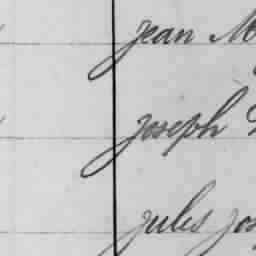 Jean M
Joseph
Jules Jos